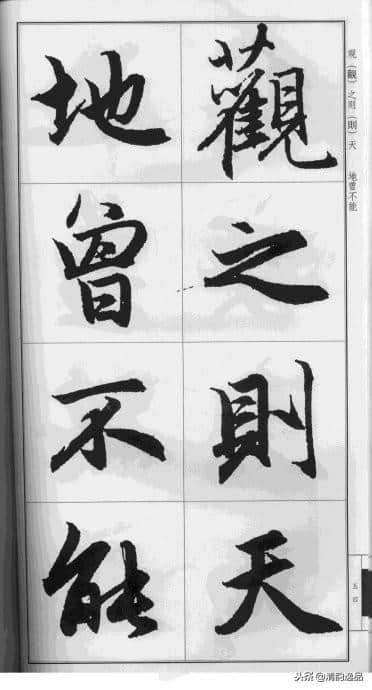 觀之則天
地曾不能
观(觀)之则(則)天 地曾不能
五四
头条@清韵逸品